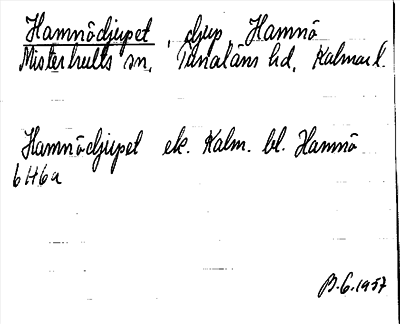 Hamnödjupet, djup Hamnö
Misterhults sn, Tunaläns hd, Kalmar l.
Hamnödjupet ek. Kalm. bl. Hamnö
6 H 6 a
B.G. 1957